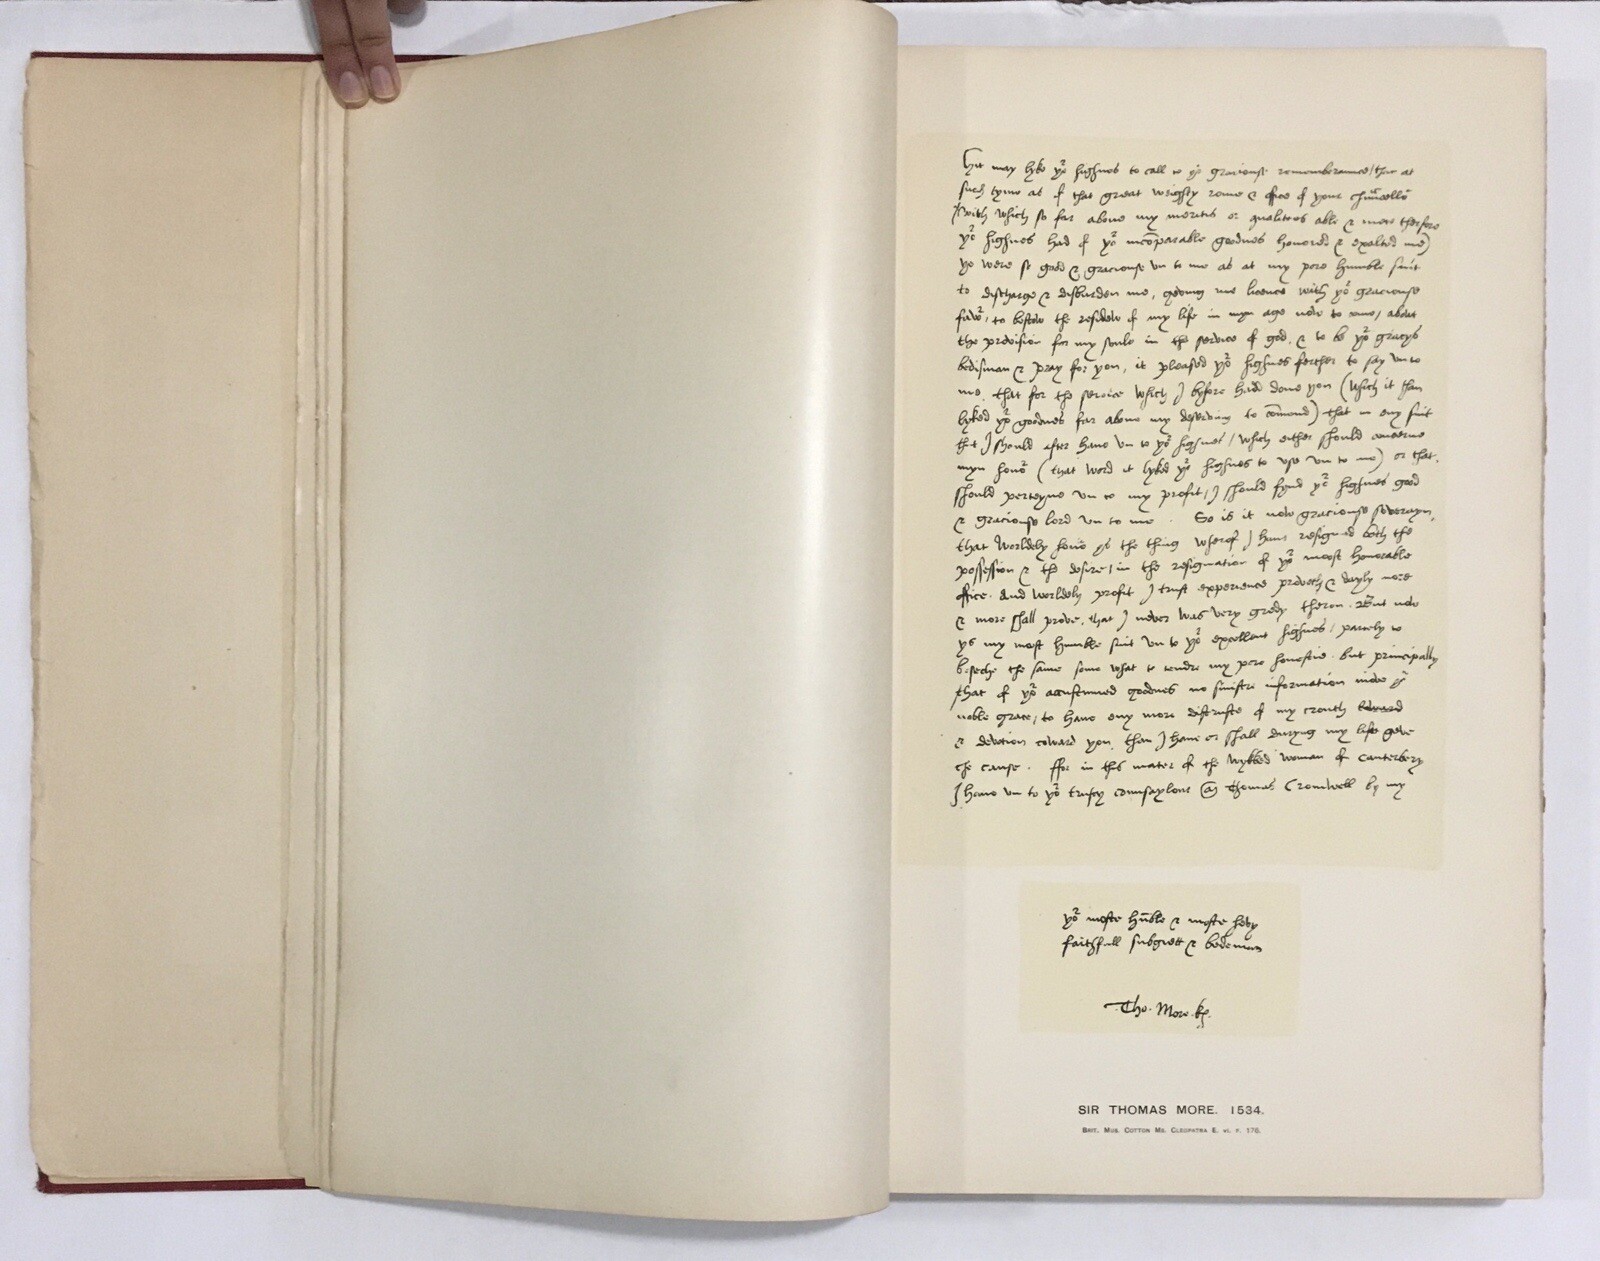 Hit may lyke yor highnes to call to yor graciouse remembraunce / that at
such tyme as of that great weighty rome & office of your chauncellor
(with which so far above my meritis or qualitees able & mete therfore
yor highnes had of yor incomparable goodnes honored & exalted me)
ye were so good & graciouse un to me as at my pore humble suit
to discharge & disburden me, geving me licence with yor graciouse
favor / to bestow the residew of my life in myn age now to come / about
the provision for my soule in the service of god, & to be yor gracys
bedisman & pray for you, it pleased yor highnes ferther to say un to
me, that for the service which I byfore had done you (which it than
lyked yor goodnes far above my deserving to comend) that in eny suit
that I should after have un to yor highnes / which either should concerne
myn honor (that word it lyked yor highnes to use un to me) or that
should perteyne un to my profit / I should fynd yor highnes good
& graciouse lord un to me . So is it now graciouse soverayn,
that worldely honor ys the thing wherof I have resigned both the
possession & the desire / in the resignation of yor moost honorable
office. And worldely profit I trust experience proveth & dayly more
& more shall prove, that I never was very gredy theron. But now
ys my most humble suit un to yor excellent highnes / partely to
beseche the same some what to tendre my pore honestie. but principally
that of yor accustumed goodnes no sinistre information move yor
noble grace / to have eny more distruste of my trouth toward
& devotion toward you, than I have or shall duryng my life geve
the cause . ffor in this mater of the wykked woman of canterbery
I have un to yor trusty counsaylour Thomas Cromwell by my
yor moste humble & moste hevy
faithfull subgiett & bedeman
Tho. More. kg.
SIR THOMAS MORE. 1534.
Brit. Mus. Cotton Ms. Cleopatra E. vi. f. 176.